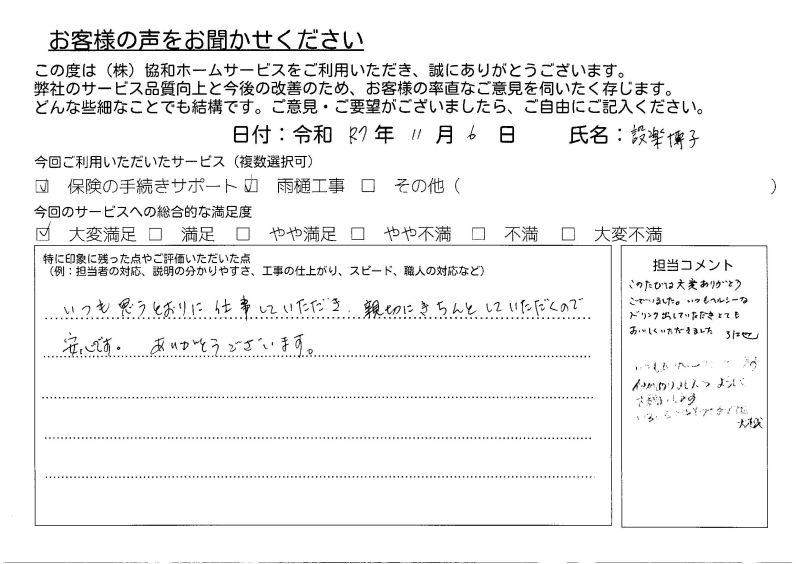 お客様の声をお聞かせください
この度は（株）協和ホームサービスをご利用いただき、誠にありがとうございます。
弊社のサービス品質向上と今後の改善のため、お客様の率直なご意見を伺いたく存じます。
どんな些細なことでも結構です。ご意見・ご要望がございましたら、ご自由にご記入ください。
日付：令和 R7 年 11 月 6 日 氏名：設楽博子
今回ご利用いただいたサービス（複数選択可）
☑ 保険の手続きサポート ☑ 雨樋工事 □ その他（ ）
今回のサービスへの総合的な満足度
☑ 大変満足 □ 満足 □ やや満足 □ やや不満 □ 不満 □ 大変不満
特に印象に残った点やご評価いただいた点
（例：担当者の対応、説明の分かりやすさ、工事の仕上がり、スピード、職人の対応など）
いつも思うとおりに仕事していただき、親切にきちんとしていただくので
安心です。 ありがとうございます。
担当コメント
このたびは大変ありがとう
ございました。いつもヘルシーな
ドリンク出していただきとても
おいしくいただきました